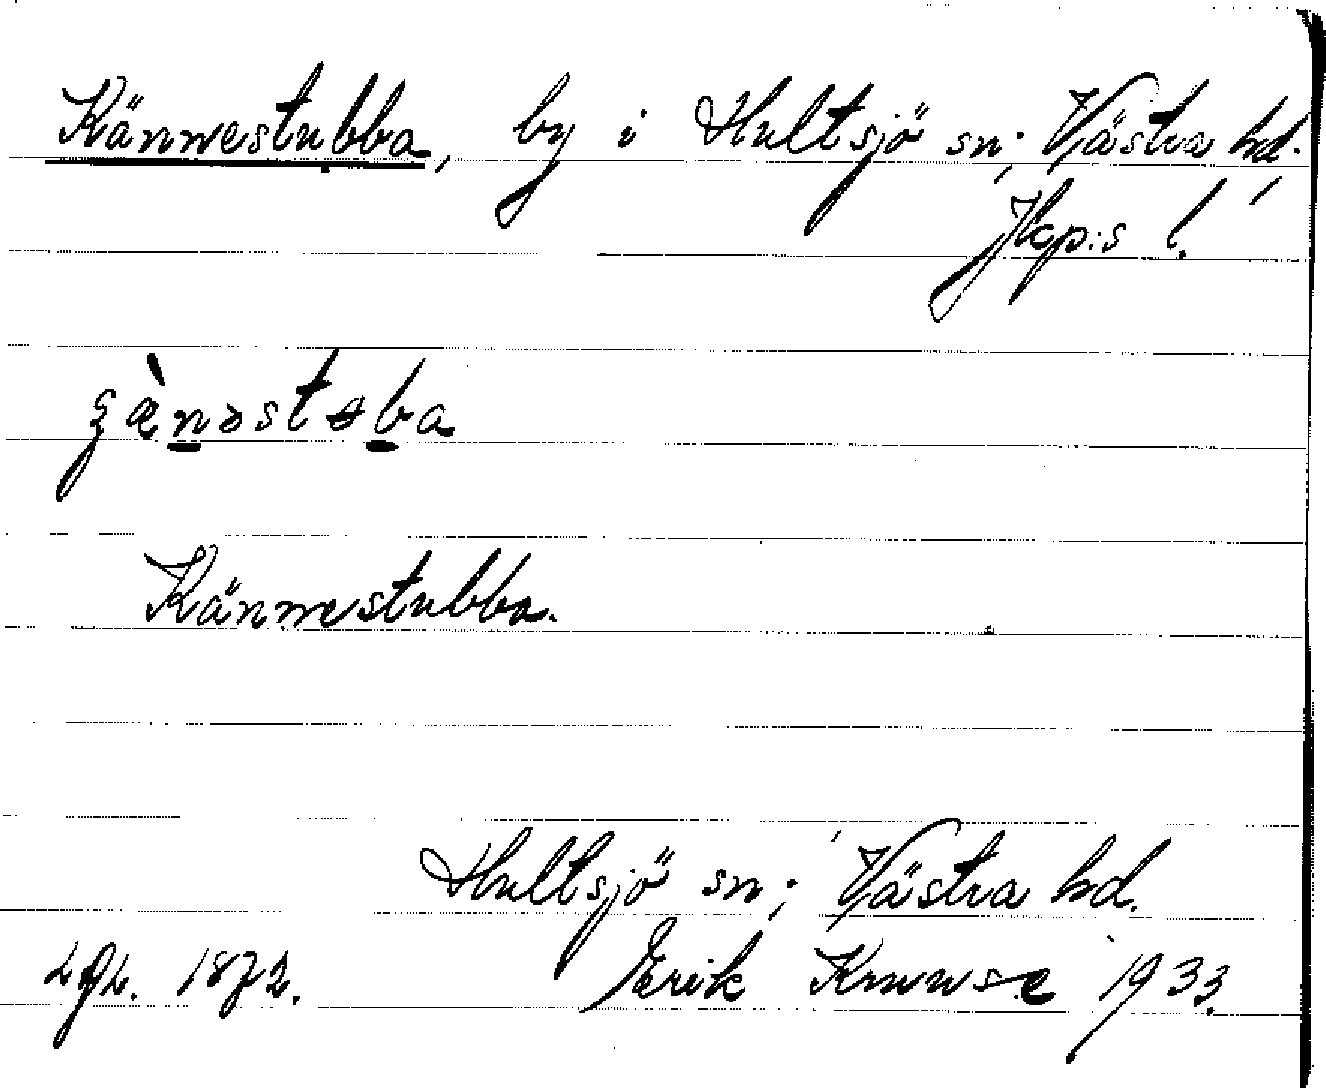 Kännestubba, by i Hultsjö sn; Västra hd.
Jkp:s l.
Kännestubba.
Hultsjö sn; Västra hd.
1872. Erik Kruuse 1933.